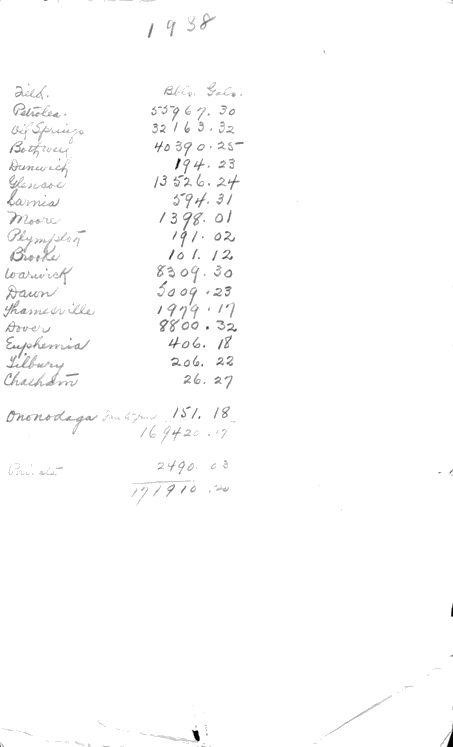 1938
Field. Bbls. Gals.
Petrolea. 55967.30
Oil Springs 32163.32
Bothwell 40390.25
Dunwich 194.23
Glencoe 13526.24
Sarnia 594.31
Moore 1398.01
Plympton 191.02
Brooke 101.12
Warwick 8309.30
Dawn 5009.23
Thamesville 1979.17
Dover 8800.32
Euphemia 406.18
Tilbury 206.22
Chatham 26.27
Ononodaga 151.18
169420.17
Private 2490.03
171910.20